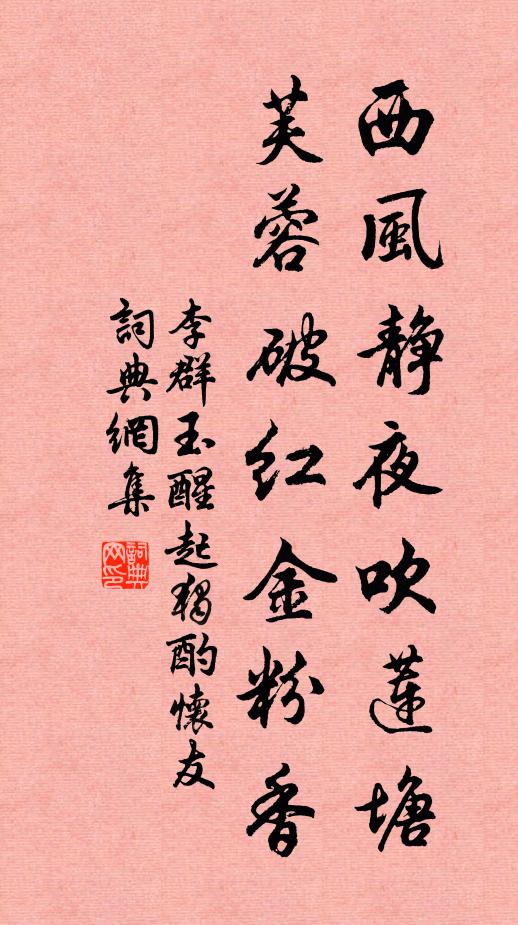 西風静夜吹蓮塘
芙蓉破紅金粉香
李群玉醒起獨酌懷友
詞典網集
詞典网印